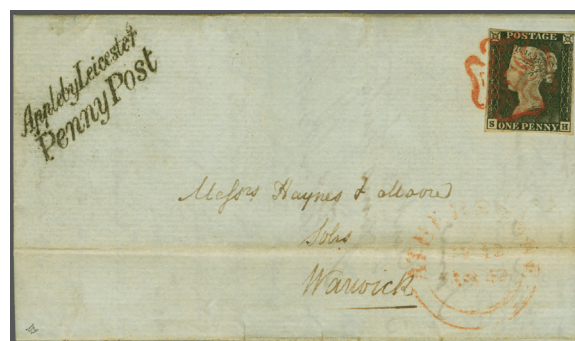 Appleby Leicester
Penny Post
POSTAGE
S H
ONE PENNY
Messrs Haynes & Moore
Solrs
Warwick